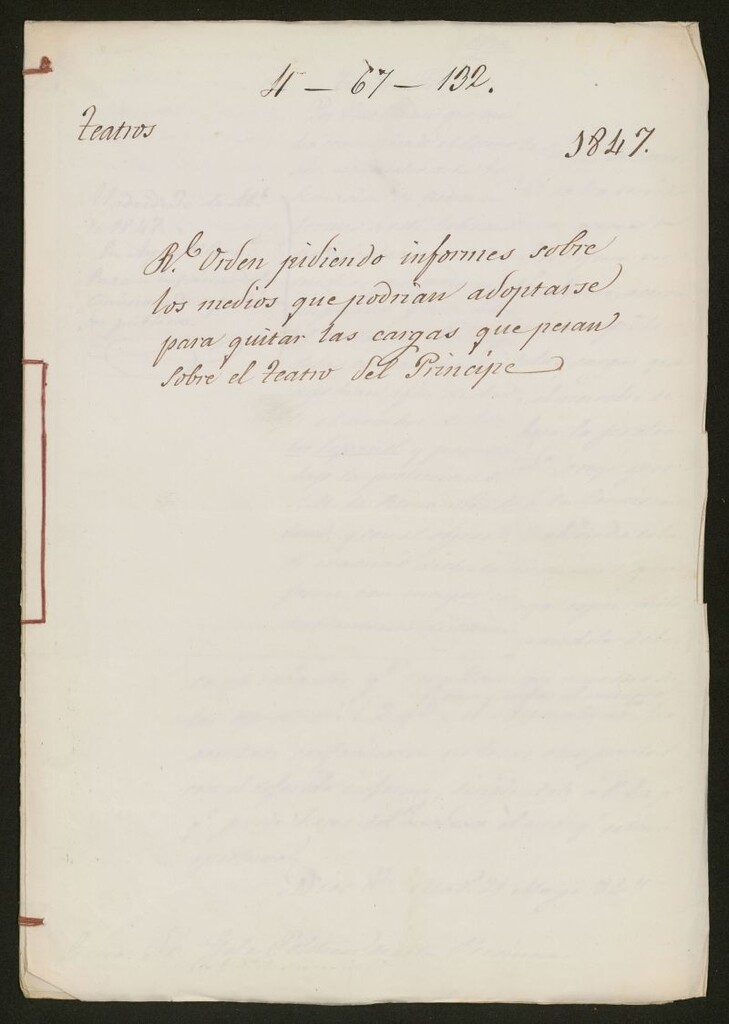 4 - 67 - 132.
Teatros
1847.
Rl. Orden pidiendo informes sobre
los medios que podrian adoptarse
para quitar las cargas que pesan
sobre el teatro del Principe